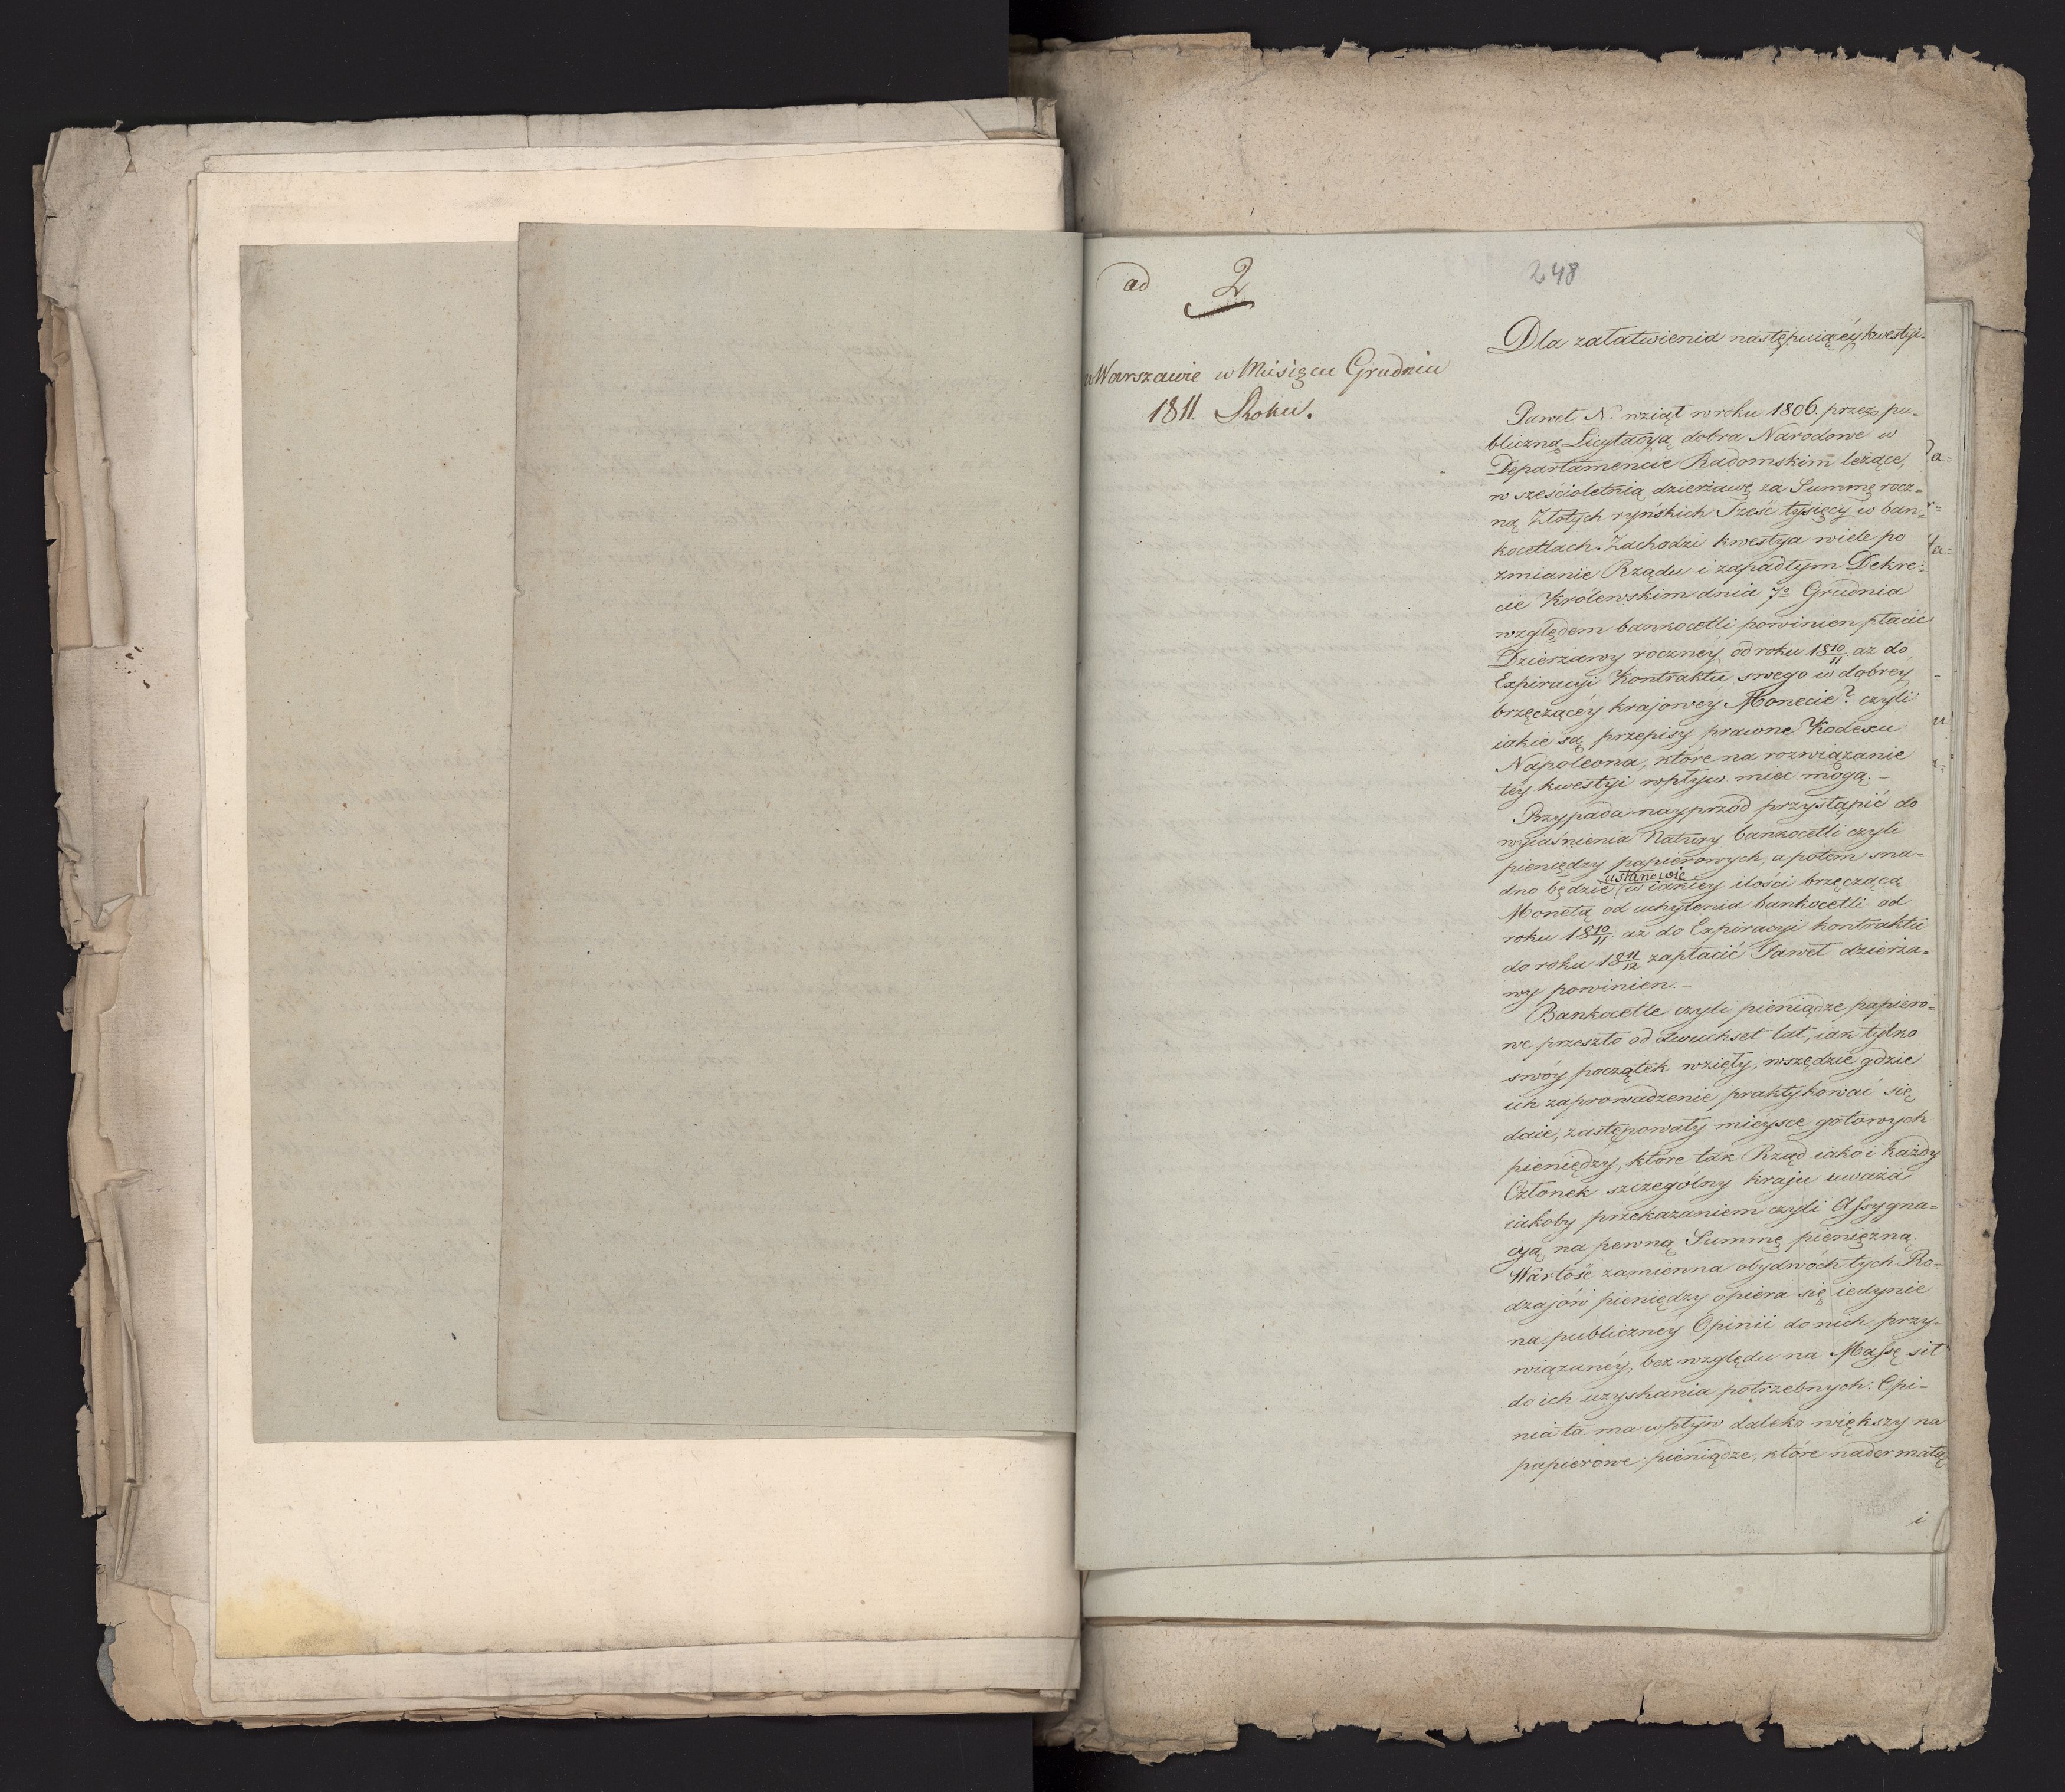 ad 2
248
w Warszawie w Miesiącu Grudniu
1811. Roku.
Dla załatwienia następuiącéy kwestyi.
Paweł N. wziął w roku 1806. przez pu-
bliczną Licytacyą dobra Narodowe w
Departamencie Radomskim leżące,
w sześcioletnią dzierżawę za Summę rocz-
ną Złotych ryńskich Sześć tysięcy w ban-
kocetlach. Zachodzi kwestya wiele po
zmianie Rządu i zapadłym Dekre-
cie Królewskim dnia 7º Grudnia
względem bankocetli powinien płacić
Dzierżawy roczney od roku 18 10/11 aż do
Expiracyi Kontraktu swego w dobrey
brzęczącéy krajowéy Monecie? czyli
iakie są przepisy prawne Kodexu
Napoleona, które na rozwiązanie
téy kwestyi wpływ mieć mogą. –
Przypada nayprzód przystąpić do
wyiaśnienia Natury bankocetli czyli
pieniędzy papierowych, a potem sna-
dno będzie ustanowić w iakiey ilości brzęczącą
Monetą od uchylenia bankocetli od
roku 18 10/11 aż do Expiracyi kontraktu
do roku 18 11/12 zapłacić Paweł dzierża-
wy powinien. –
Bankocetle czyli pieniądze papiero-
we przeszło od dwuchset lat, iak tylko
swóy początek wzięły, wszędzie gdzie
ich zaprowadzenie praktykować się
daie, zastępowały mieysce gotowych
pieniędzy, które tak Rząd iako i każdy
Członek szczególny kraju uważa
iakoby przekazaniem czyli Assygna-
cyą na pewną Summę pieniężną.
Wartość zamienna obydwóch tych Ro-
dzajów pieniędzy opiera się iedynie
na publicznéy Opinii do nich przy-
wiązanéy, bez względu na Massę sił
do ich uzyskania potrzebnych. Opi-
nia ta ma wpływ daleko większy na
papierowe pieniądze, które nader małą
i